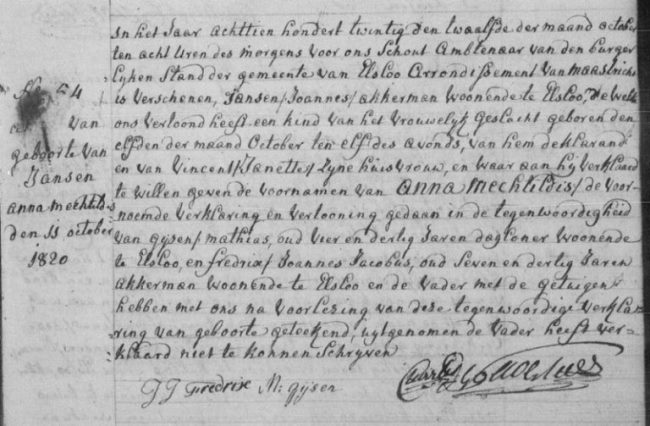 No 54
van
geboorte van
Jansen
anna mechtild-
den 11 october
1820
in het Jaar achttien hondert twintig den twaalfde der maand october
ten acht Uren des morgens voor ons Schout Ambtenaar van den burger
lyken Stand der gemeente van Elsloo Arrondissement van maastricht
is verschenen, Jansen / Joannes / akkerman woonende te Elsloo, de welk
ons vertoond heeft een kind van het vrouwelyk Geslacht geboren den
elfden der maand October ten elf des avonds, van hem deklarand
en van Vincent / Janette / Zyne huisvrouw, en waar aan hy verklaard
te willen geven de voornamen van Anna Mechtildis / de voor-
noemde verklaring en vertooning gedaan in de tegenwoordigheid
van gysen / mathias, oud vier en dertig Jaren dagloner woonende
te Elsloo, en fredrix / Joannes Jacobus, oud Seven en dertig Jaren
akkerman woonende te Elsloo en de vader met de getuigen
hebben met ons na voorlezing van deze tegenwoordige verkla-
ring van geboorte geteekend, uytgenomen de vader heeft ver-
klaard niet te konnen Schryven
JJ Fredrix M: gysen